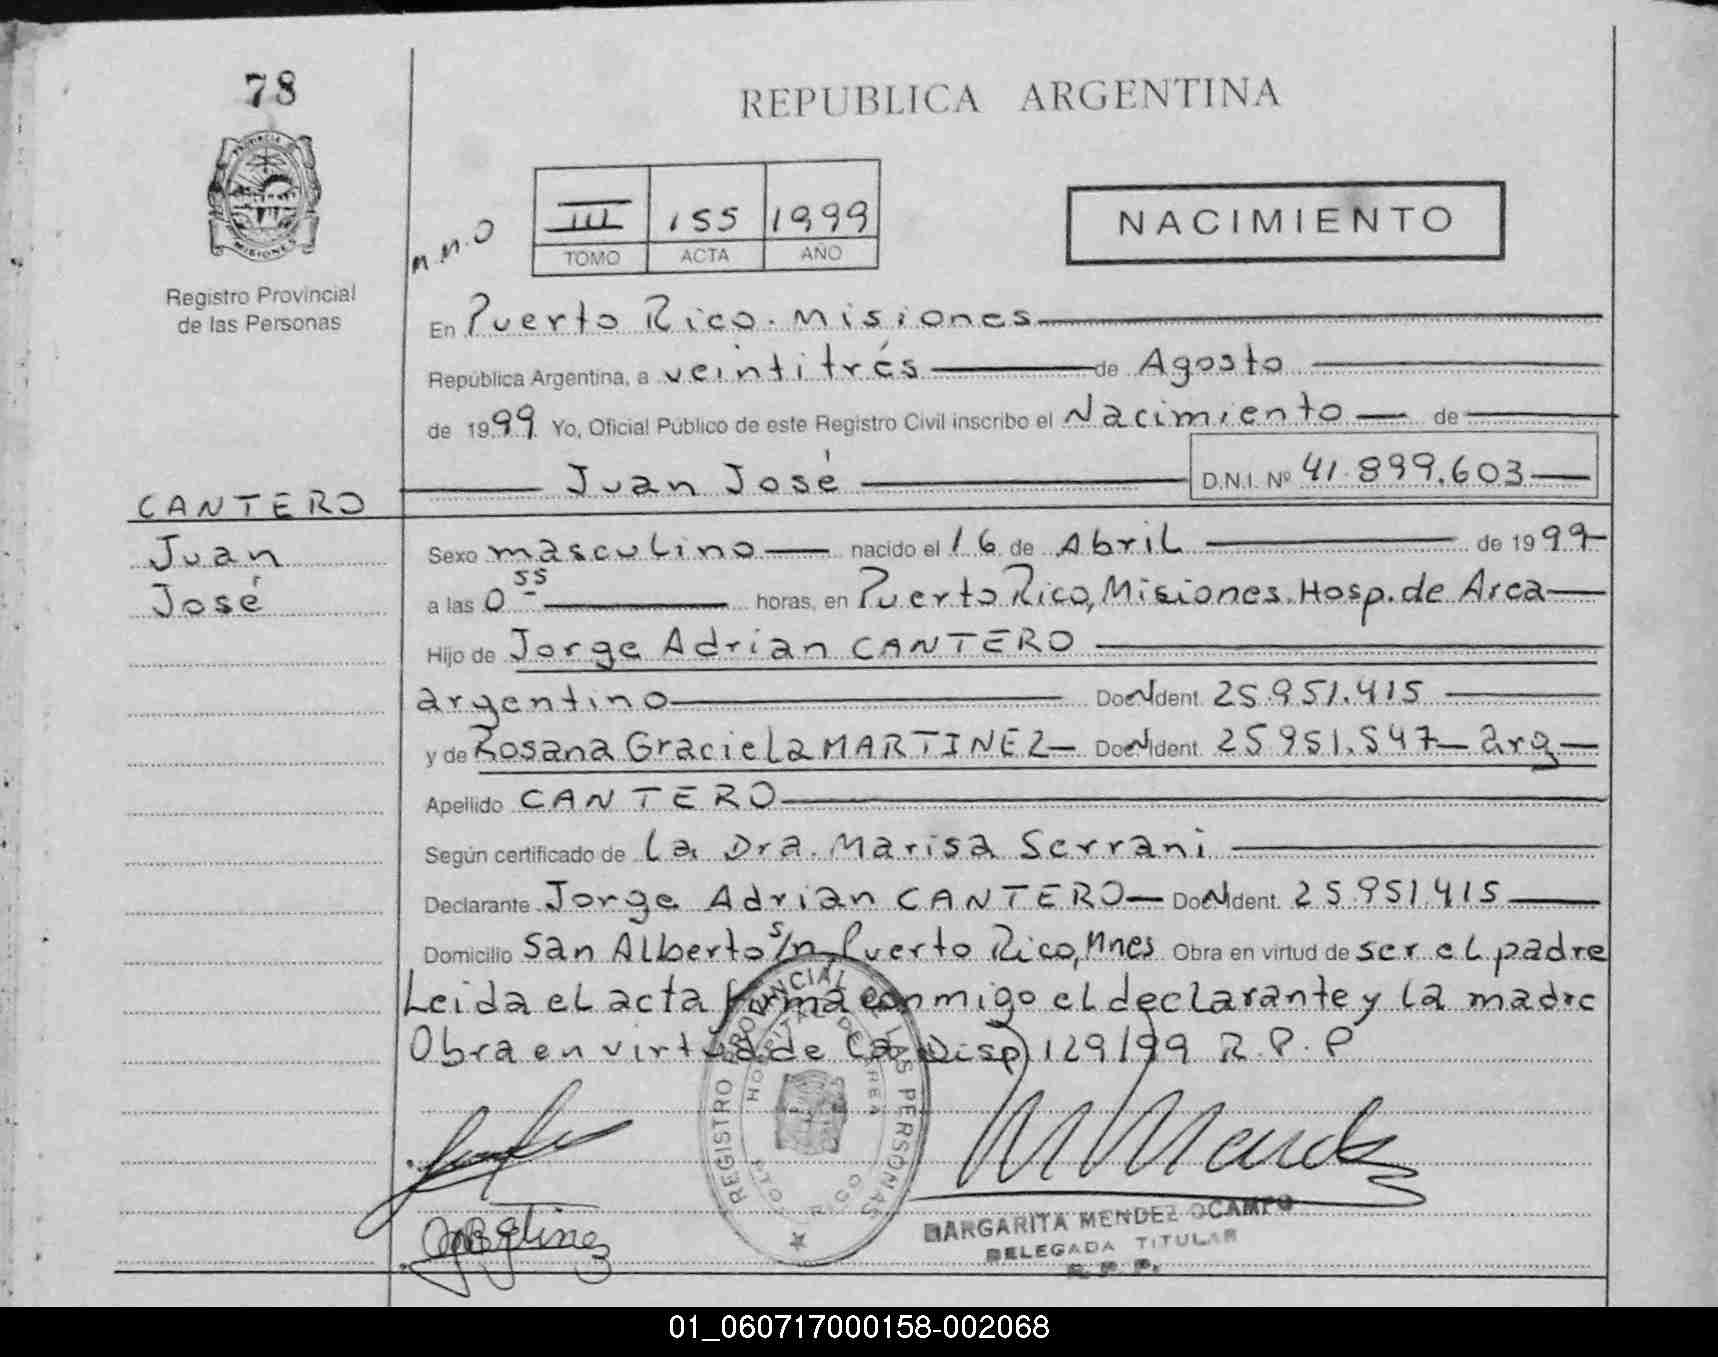 78
REPUBLICA ARGENTINA
PROVINCIA DE
MISIONES
Registro Provincial
de las Personas
m.n.o
III 155 1999
TOMO ACTA AÑO
NACIMIENTO
En Puerto Rico. Misiones
República Argentina, a veintitrés de Agosto
de 1999 Yo, Oficial Público de este Registro Civil inscribo el Nacimiento de
Juan José D.N.I. Nº 41.899.603
CANTERO
Juan
José
Sexo masculino nacido el 16 de Abril de 1999
a las 0 55 horas, en Puerto Rico, Misiones. Hosp. de Area
Hijo de Jorge Adrian CANTERO
argentino Doc Ident. 25.951.415
y de Rosana Graciela MARTINEZ Doc Ident. 25.951.547 arg
Apellido CANTERO
Según certificado de La Dra. Marisa Serrani
Declarante Jorge Adrian CANTERO Doc Ident. 25.951.415
Domicilio San Alberto s/n Puerto Rico, Mnes Obra en virtud de ser el padre
Leida el acta firma conmigo el declarante y la madre
Obra en virtud de la Disp 129/99 R.P.P
REGISTRO PROVINCIAL DE LAS PERSONAS
HOSPITAL DE AREA
PTO. RICO
MARGARITA MENDEZ OCAMPO
DELEGADA TITULAR
R.P.P.
01_060717000158-002068